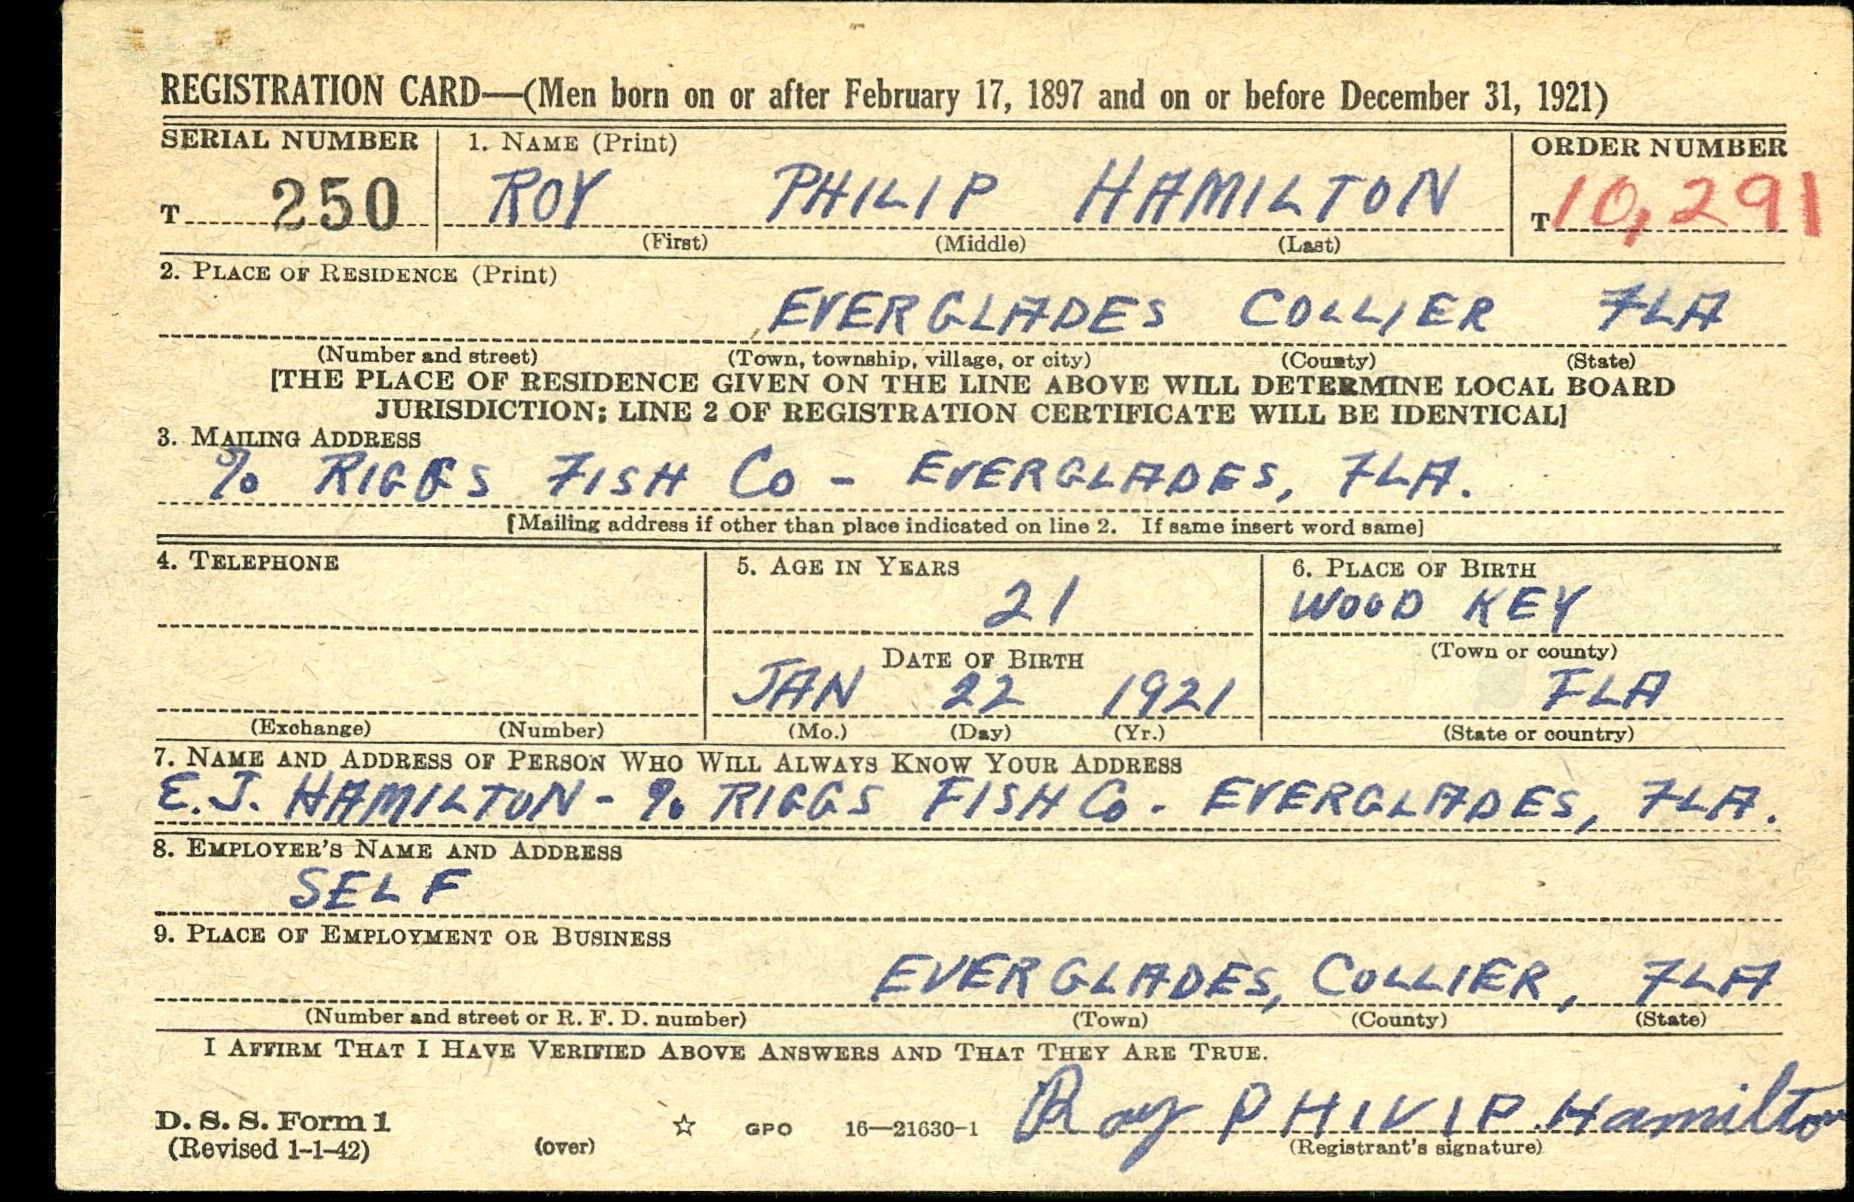 REGISTRATION CARD—(Men born on or after February 17, 1897 and on or before December 31, 1921)
SERIAL NUMBER
1. NAME (Print)
ORDER NUMBER
T 250
ROY PHILIP HAMILTON
T 10,291
(First) (Middle) (Last)
2. PLACE OF RESIDENCE (Print)
EVERGLADES COLLIER FLA
(Number and street) (Town, township, village, or city) (County) (State)
[THE PLACE OF RESIDENCE GIVEN ON THE LINE ABOVE WILL DETERMINE LOCAL BOARD
JURISDICTION; LINE 2 OF REGISTRATION CERTIFICATE WILL BE IDENTICAL]
3. MAILING ADDRESS
% RIGGS FISH CO - EVERGLADES, FLA.
[Mailing address if other than place indicated on line 2. If same insert word same]
4. TELEPHONE
5. AGE IN YEARS
6. PLACE OF BIRTH
21
WOOD KEY
(Town or county)
DATE OF BIRTH
JAN 22 1921
FLA
(Exchange) (Number)
(Mo.) (Day) (Yr.)
(State or country)
7. NAME AND ADDRESS OF PERSON WHO WILL ALWAYS KNOW YOUR ADDRESS
E.J. HAMILTON - % RIGGS FISH CO - EVERGLADES, FLA.
8. EMPLOYER'S NAME AND ADDRESS
SELF
9. PLACE OF EMPLOYMENT OR BUSINESS
EVERGLADES, COLLIER, FLA
(Number and street or R. F. D. number) (Town) (County) (State)
I AFFIRM THAT I HAVE VERIFIED ABOVE ANSWERS AND THAT THEY ARE TRUE.
D. S. S. Form 1
(Revised 1-1-42)
(over)
☆ GPO 16—21630-1
Roy PHIVIP Hamilton
(Registrant's signature)